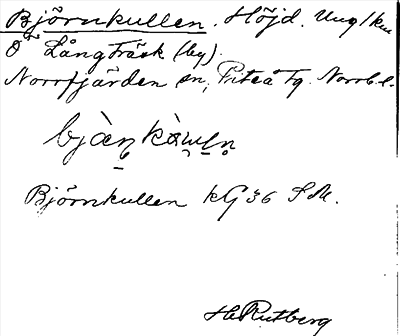 Björnkullen. Höjd. Ung 1 km
O Långträsk (by).
Norrfjärden sn, Piteå tg. Norrb. l.
Björnkullen KG 36 S.M.
H Rutberg